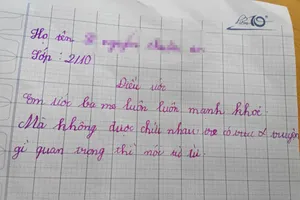 Họ tên
Lớp: 2/10
Điều ước
Em ước ba mẹ luôn luôn mạnh khỏe
Mà không được chửi nhau
gì quan trọng thì nói từ từ.